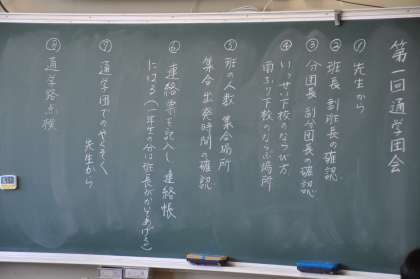 第一回 通学団会
①先生から
②班長 副班長の確認
③分団長 副分団長の確認
④いっせい下校のならび方
雨ふり下校のならぶ場所
⑤班の人数 集合場所
集合 出発時間の確認
⑥連絡票を記入し、連絡帳
にはる(一年生の分は班長がかいてあげる)
⑦通学団でのやくそく
先生から
⑧通学路点検